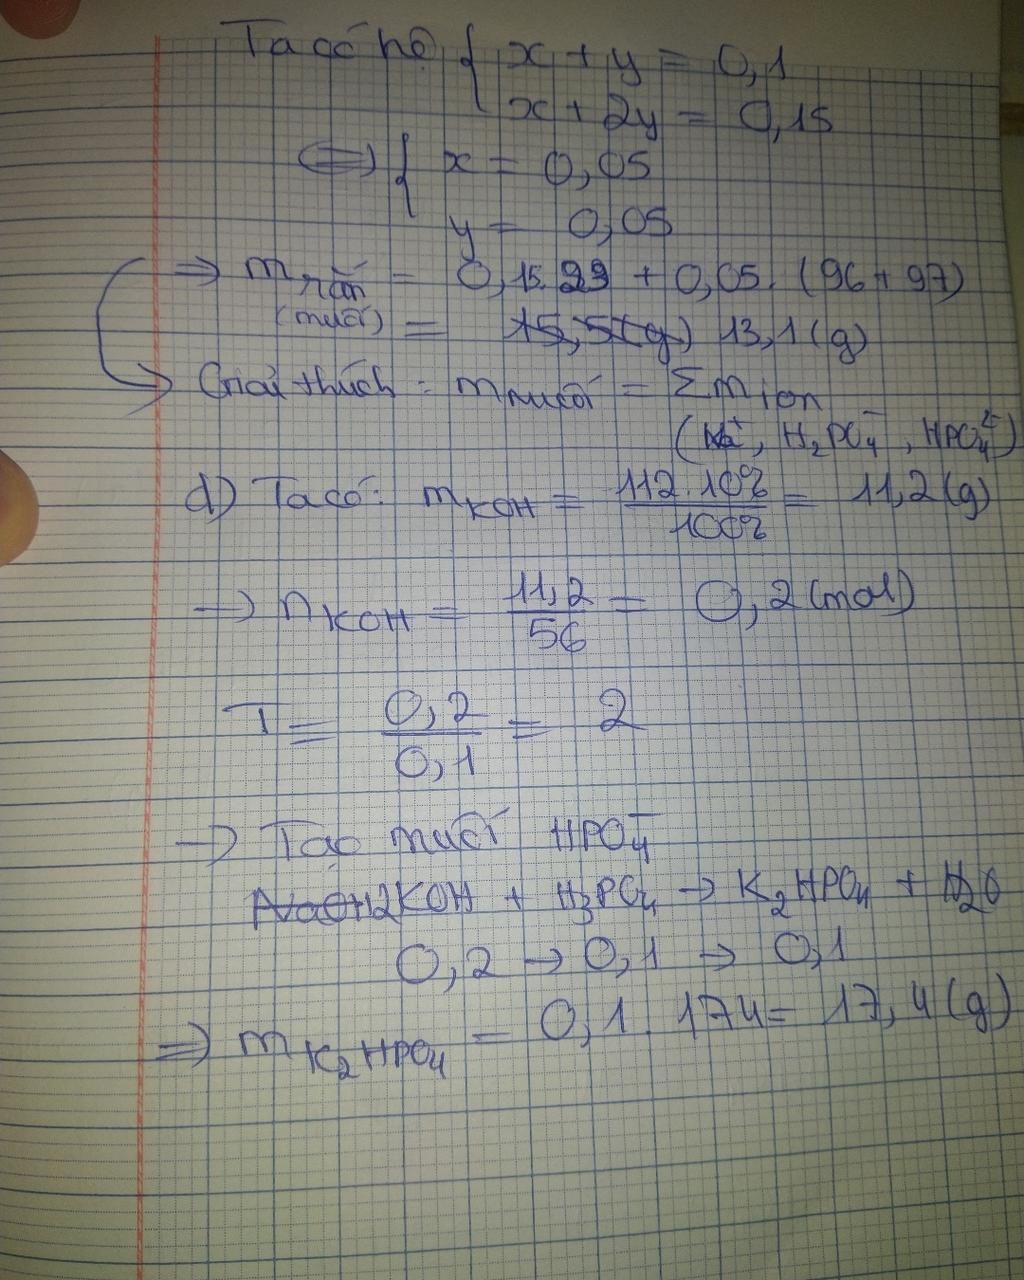 Ta có hệ { x + y = 0,1
x + 2y = 0,15
⇔ { x = 0,05
y = 0,05
⇒ m rắn = 0,15.23 + 0,05. (96 + 97)
(muối) = 15,5(g) 13,1(g)
Giải thích : m muối = Σm ion
(Na⁺, H₂PO₄⁻, HPO₄²⁻)
d) Ta có: mKOH = 112.10% / 100% = 11,2(g)
→ nKOH = 11,2 / 56 = 0,2 (mol)
T = 0,2 / 0,1 = 2
→ Tạo muối HPO₄⁻
NaOH 2KOH + H₃PO₄ → K₂HPO₄ + H₂O
0,2 → 0,1 → 0,1
⇒ mK₂HPO₄ = 0,1. 174 = 17,4(g)